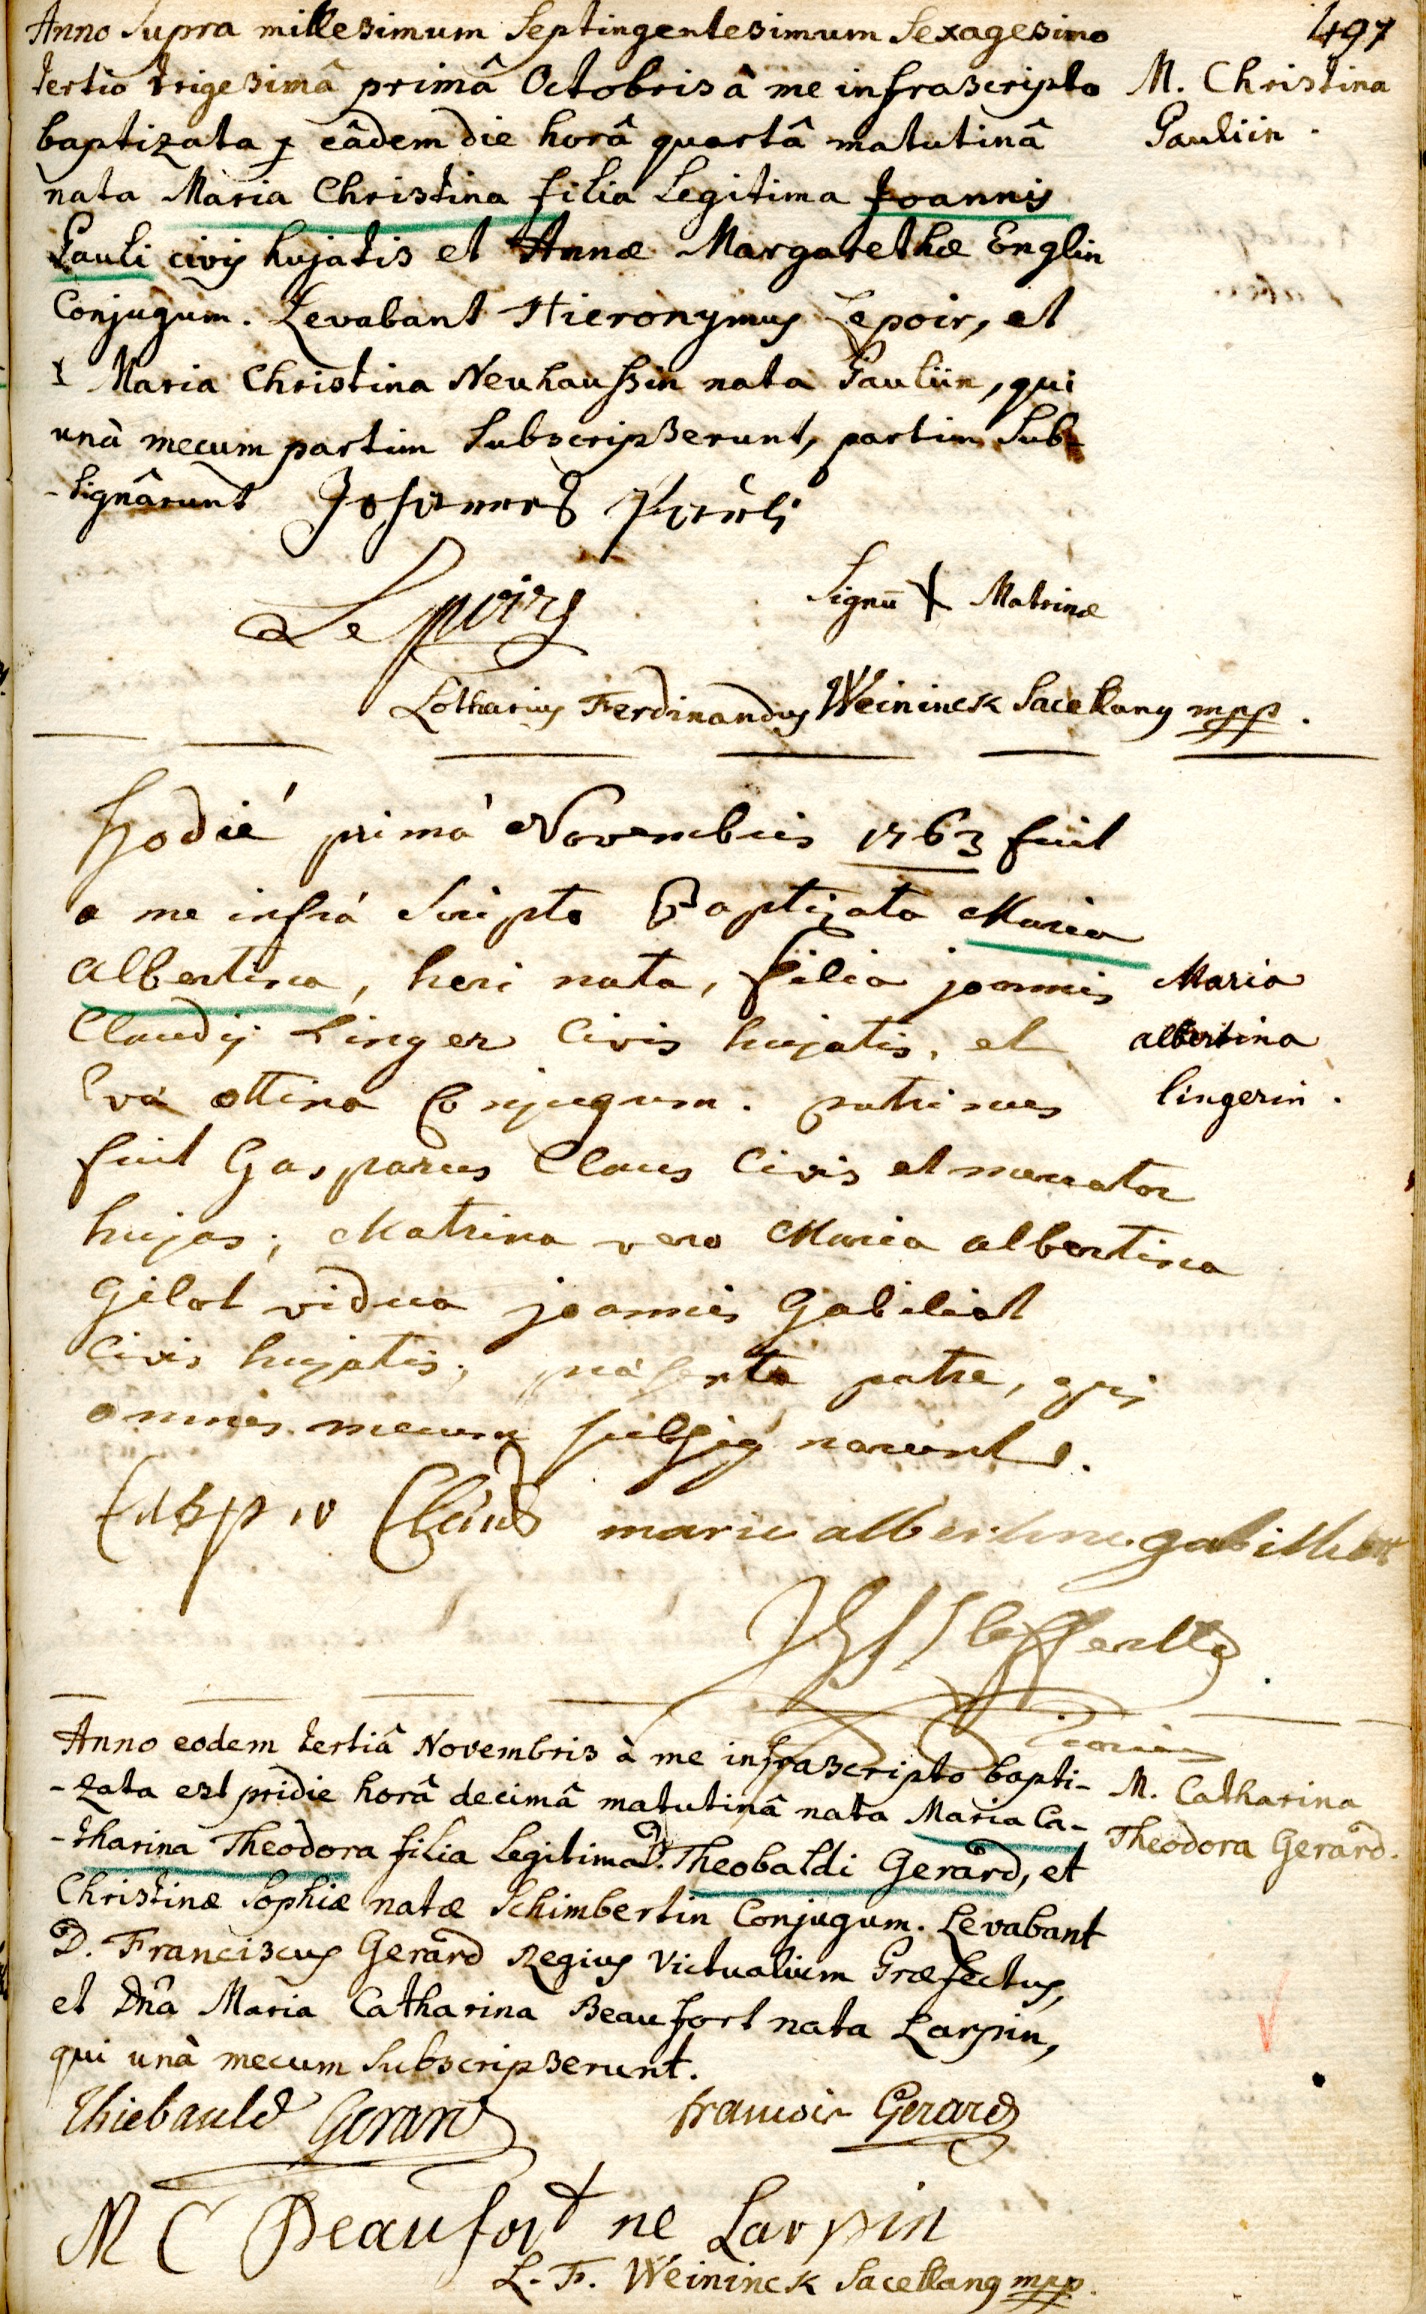 497
Anno supra millesimum Septingentesimum Sexagesimo
tertio trigesimâ primâ Octobris â me infrascripto
baptizata eâdem die horâ quartâ matutinâ
nata Maria Christina filia Legitima Joannis
Pauli civis hujatis et Annæ Margarethæ Englin
Conjugum. Levabant Hieronymus Lepoir, et
Maria Christina Neuhaussin nata Pauliin, qui
unà mecum partim Subscripserunt, partim Sub-
-signârunt Johannes Pauli
M. Christina
Pauliin.
Le poirs
Signū Matrinæ
Lotharius Ferdinandus Weininck Sacellanus mpp.
Hodié primâ Novembris 1763 fuit
a me infrá Scripto Baptizata Maria
albertina, heri nata, filia joannis
Claudij Linger Civis hujatis, et
Eva ottina Conjugum. patrinus
fuit Gasparus Claus Civis et mercator
hujas; Matrina vero Maria albertina
Gilot vidua joannis Gabiliot
Civis hujatis; præsente patre, qui
omnes mecum subsignarunt.
Maria
albertina
lingerin.
Casper Claus marie albertine gabilliot
Anno eodem tertiâ Novembris à me infrascripto bapti-
-zata est pridie horâ decimâ matutinâ nata Maria Ca-
-tharina Theodora filia Legitima D. Theobaldi Gerard, et
Christinæ Sophiæ natæ Schimbertin Conjugum. Levabant
D. Franciscus Gerard Regius Victualium Præfectus,
et Dña Maria Catharina Beaufort nata Larpin,
qui unà mecum Subscripserunt.
M. Catharina
Theodora Gerard.
Thiebauld Gerard francois Gerard
M C Beaufort ne Larpin
L. F. Weininck Sacellanus mpp.